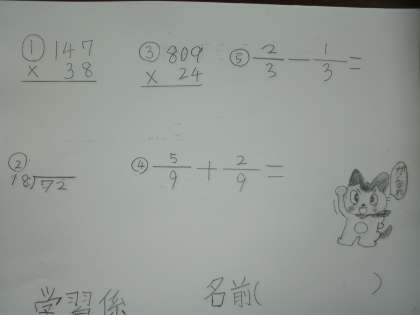 ① 147
× 38
② 18)72
③ 809
× 24
④ 5/9 + 2/9 =
⑤ 2/3 - 1/3 =
学習係 名前( )